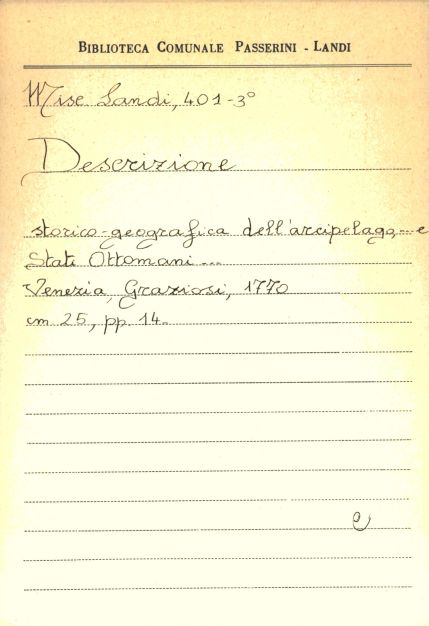 BIBLIOTECA COMUNALE PASSERINI - LANDI
Misc Landi, 401-3°
Descrizione
storico-geografica dell'arcipelago... e
Stati Ottomani...
Venezia, Graziosi, 1770
cm 25, pp. 14.
e